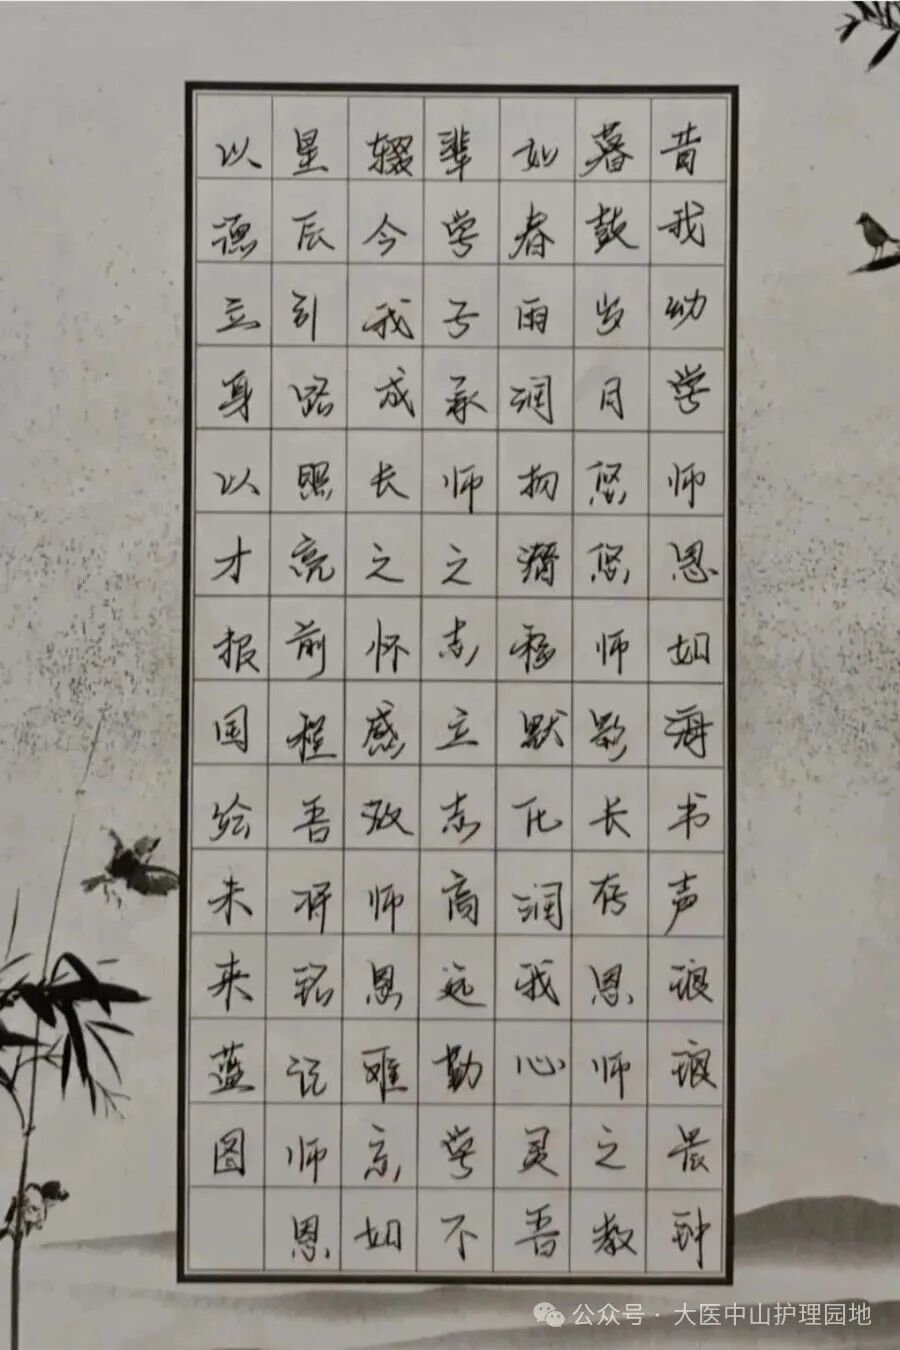 昔我幼学师恩如海书声琅琅晨钟
暮鼓岁月悠悠师影长存恩师之教
如春雨润物潜移默化润我心灵吾
辈学子承师之志立志高远勤学不
辍今我成长之怀感激师恩难忘如
星辰引路照亮前程吾将铭记师恩
以德立身以才报国绘未来蓝图
公众号·大医中山护理园地